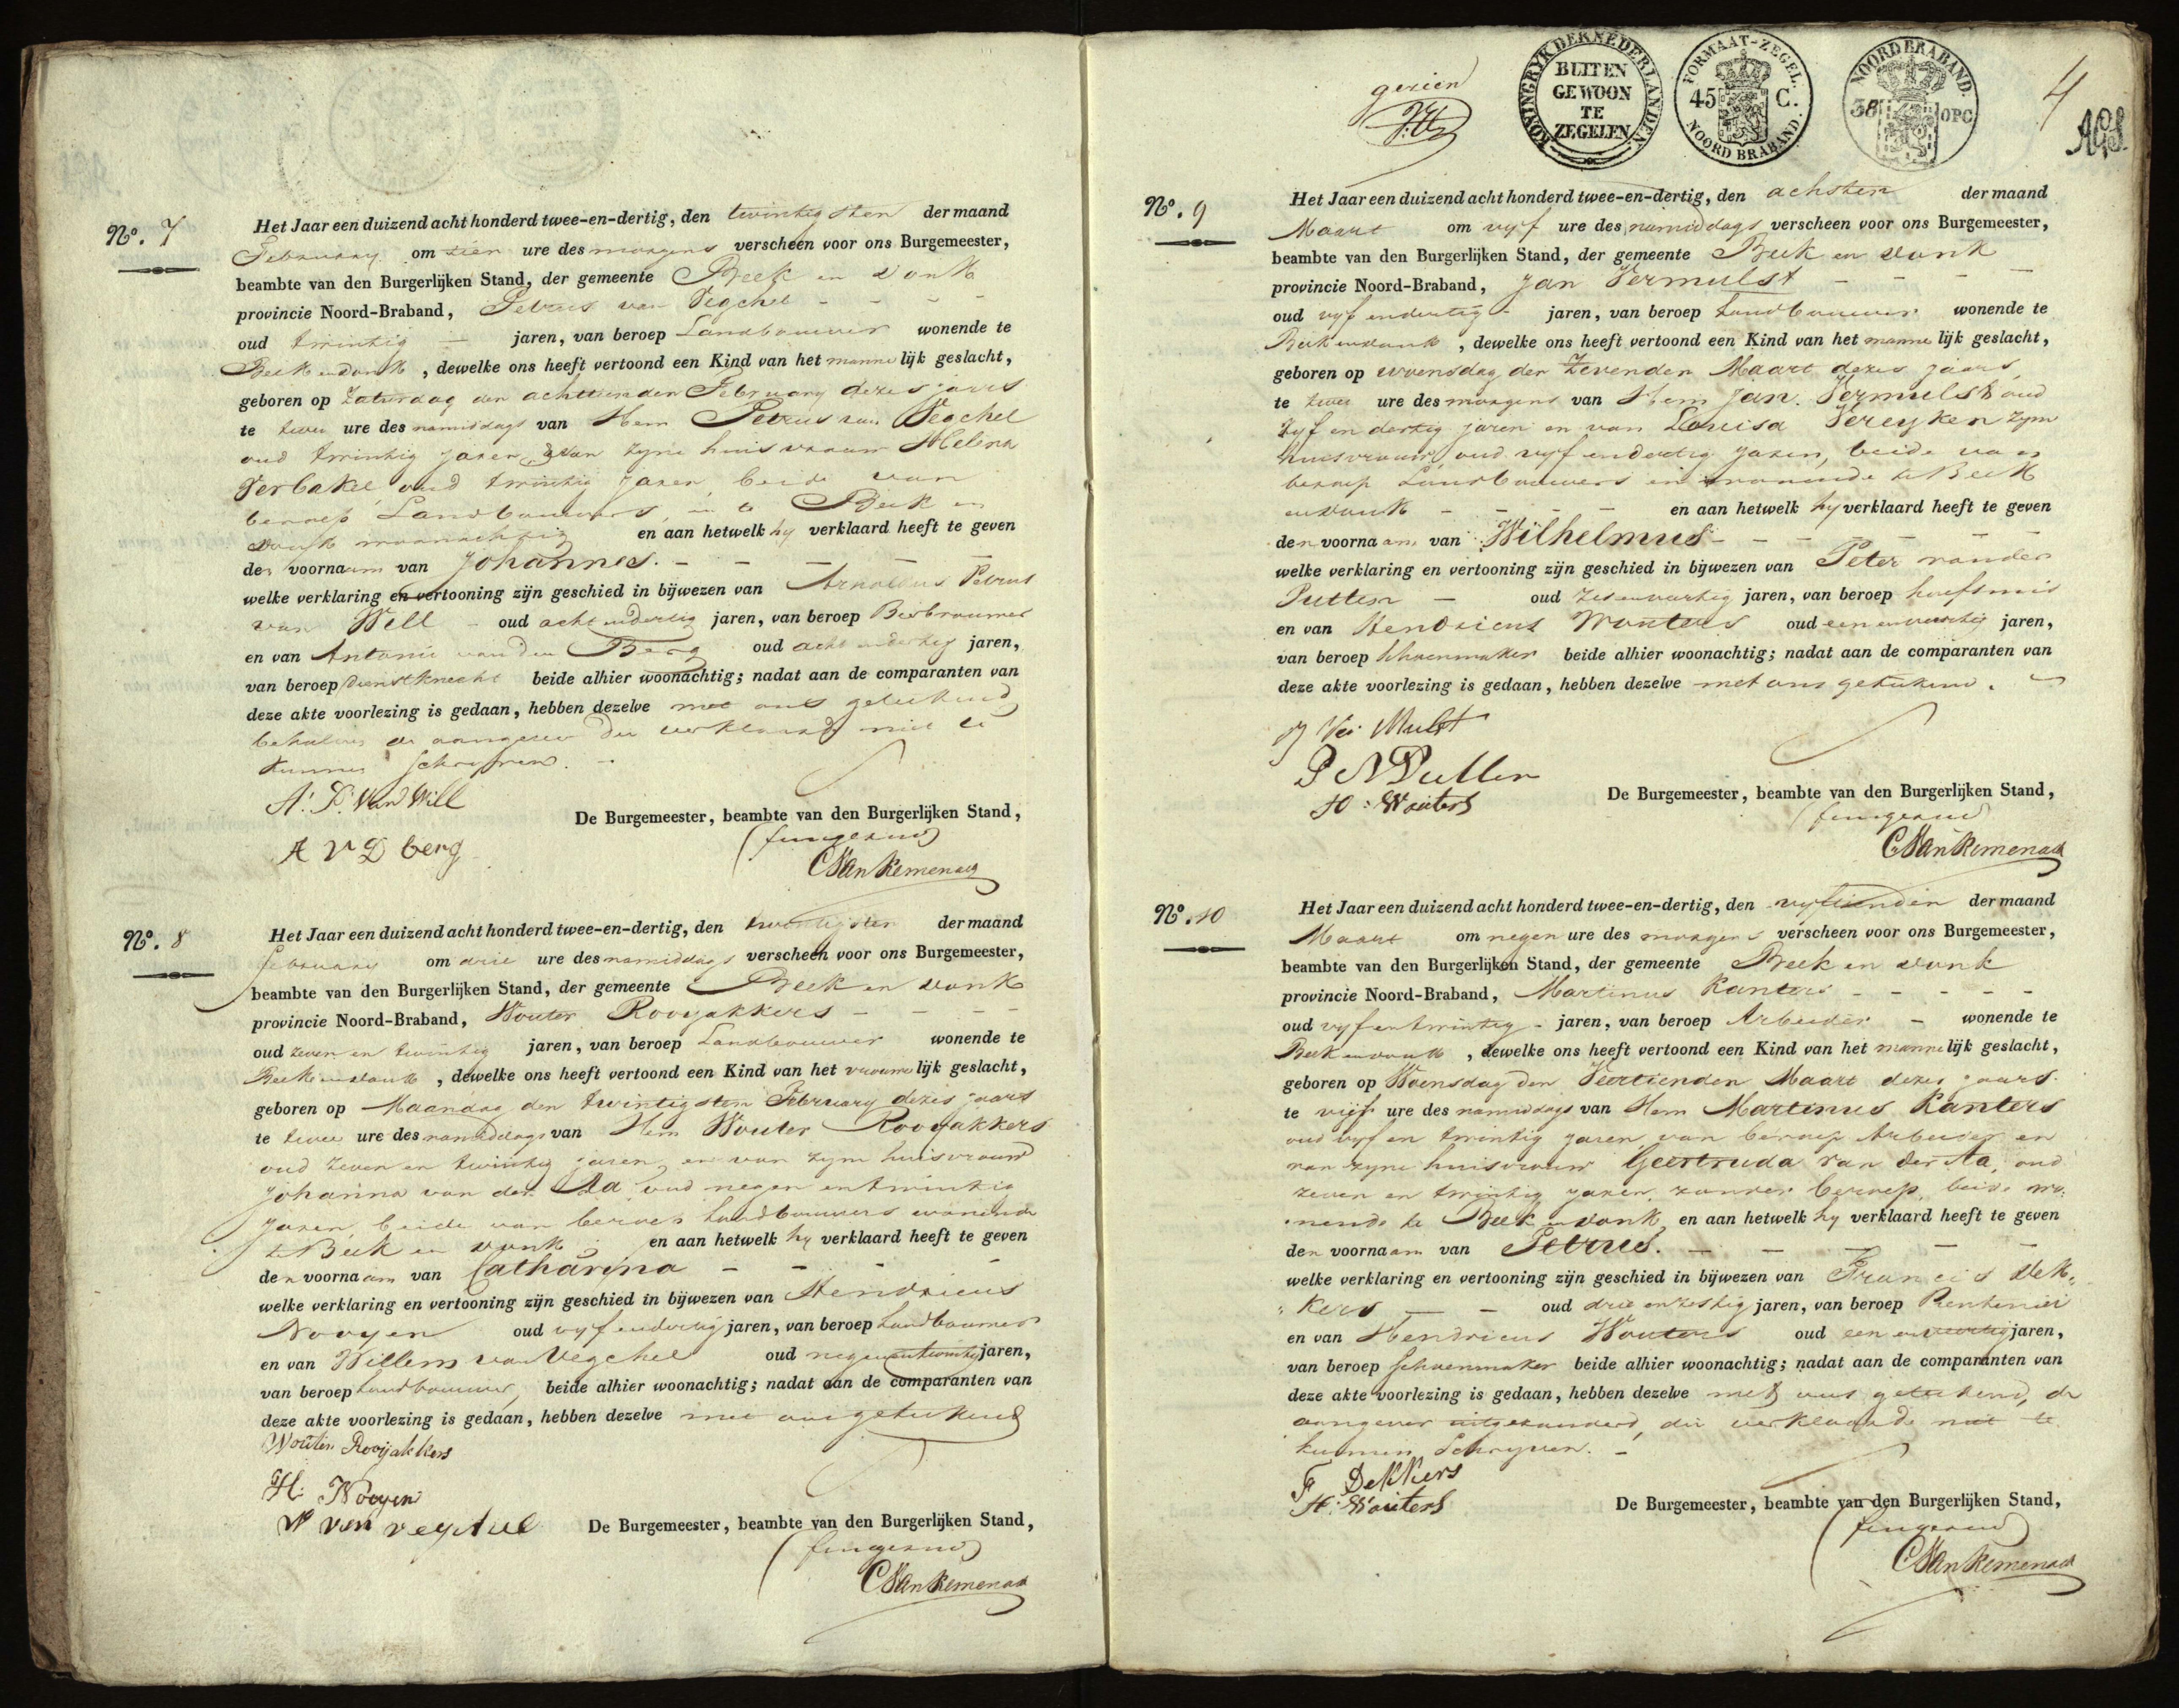 N°. 7
Het Jaar een duizend acht honderd twee-en-dertig, den twintigsten der maand
February om tien ure des morgens verscheen voor ons Burgemeester,
beambte van den Burgerlijken Stand, der gemeente Beek en Donk
provincie Noord-Braband, Petrus van Vegchel
oud twintig jaren, van beroep Landbouwer wonende te
Beek en donk, dewelke ons heeft vertoond een Kind van het mannelijk geslacht,
geboren op Zaturdag den achttienden February dezes jaars
te twee ure des namiddags van Hem Petrus van Vegchel
oud twintig jaren, & van zyne huisvrouw Helena
Verbakel oud twintig jaren beide van
beroep Landbouwers, in te Beek en
donk woonachtig en aan hetwelk hy verklaard heeft te geven
den voornaam van Johannes.
welke verklaring en vertooning zijn geschied in bijwezen van Arnoldus Petrus
van Will oud acht en dertig jaren, van beroep Bierbrouwer
en van Antonie van den Berg oud acht en dertig jaren,
van beroep dienstknecht beide alhier woonachtig; nadat aan de comparanten van
deze akte voorlezing is gedaan, hebben dezelve met ons getekend
behalve de aangever die verklaard niet te
kunnen schryven.
A. P. Van Will
A V D berg
De Burgemeester, beambte van den Burgerlijken Stand,
(fungerend)
C Van Kemenade
N°. 8
Het Jaar een duizend acht honderd twee-en-dertig, den twintigsten der maand
february om drie ure des namiddags verscheen voor ons Burgemeester,
beambte van den Burgerlijken Stand, der gemeente Beek en donk
provincie Noord-Braband, Wouter Rooyakkers
oud zeven en twintig jaren, van beroep Landbouwer wonende te
Beek en donk, dewelke ons heeft vertoond een Kind van het vrouwelijk geslacht,
geboren op Maandag den twintigsten February dezes jaars
te twee ure des namiddags van Hem Wouter Rooyakkers
oud zeven en twintig jaren, en van zyne huisvrouw
Johanna van der Aa oud negen en twintig
jaren, beide van beroep landbouwers wonende
te Beek en donk en aan hetwelk hy verklaard heeft te geven
den voornaam van Catharina
welke verklaring en vertooning zijn geschied in bijwezen van Hendricus
Nooyen oud vyf en dertig jaren, van beroep landbouwer
en van Willem van Vegchel oud negen en twintig jaren,
van beroep landbouwer, beide alhier woonachtig; nadat aan de comparanten van
deze akte voorlezing is gedaan, hebben dezelve met ons getekend
Wouter Rooijakkers
H: Nooyen
W van vegchel
De Burgemeester, beambte van den Burgerlijken Stand,
(fungerend)
C Van Kemenade
gezien
KONINGRYK DER NEDERLANDEN
BUITEN
GEWOON
TE
ZEGELEN
FORMAAT-ZEGEL.
45 C.
NOORD BRABAND.
NOORDBRABAND.
38 OPC
4
N°. 9
Het Jaar een duizend acht honderd twee-en-dertig, den achsten der maand
Maart om vyf ure des namiddags verscheen voor ons Burgemeester,
beambte van den Burgerlijken Stand, der gemeente Beek en donk
provincie Noord-Braband, Jan Vermulst
oud vyf en dertig jaren, van beroep landbouwer wonende te
Beek en donk, dewelke ons heeft vertoond een Kind van het mannelijk geslacht,
geboren op woensdag den Zevenden Maart dezes jaars
te twee ure des morgens van Hem Jan Vermulst oud
vyf en dertig jaren en van Louisa Vereyken zyne
huisvrouw oud vyf en dertig jaren, beide van
beroep Landbouwers en wonende te Beek
en donk en aan hetwelk hy verklaard heeft te geven
den voornaam van Wilhelmus
welke verklaring en vertooning zijn geschied in bijwezen van Peter vander
Putten oud zes en veertig jaren, van beroep hoefsmid
en van Hendricus Wouters oud een en veertig jaren,
van beroep schoenmaker beide alhier woonachtig; nadat aan de comparanten van
deze akte voorlezing is gedaan, hebben dezelve met ons getekend.
J Ver Mulst
P V Putten
H: Wouters
De Burgemeester, beambte van den Burgerlijken Stand,
(fungerend)
C Van Kemenade
N°. 10
Het Jaar een duizend acht honderd twee-en-dertig, den vyftienden der maand
Maart om negen ure des morgens verscheen voor ons Burgemeester,
beambte van den Burgerlijken Stand, der gemeente Beek en donk
provincie Noord-Braband, Martinus Kanters
oud vyf en twintig jaren, van beroep Arbeider wonende te
Beek en donk, dewelke ons heeft vertoond een Kind van het mannelijk geslacht,
geboren op Woensdag den Veertienden Maart dezes jaars
te vijf ure des namiddags van Hem Martinus Kanters
oud vyf en twintig jaren, van beroep Arbeider en
van zyne huisvrouw Geertruda van der Aa, oud
zeven en twintig jaren, zonder beroep, beide wo:
:nende te Beek en donk, en aan hetwelk hy verklaard heeft te geven
den voornaam van Petrus.
welke verklaring en vertooning zijn geschied in bijwezen van Francis Dek:
:kers oud drie en zestig jaren, van beroep Rentenier
en van Hendricus Wouters oud een en veertig jaren,
van beroep schoenmaker beide alhier woonachtig; nadat aan de comparanten van
deze akte voorlezing is gedaan, hebben dezelve met ons getekend, de
aangever uitgezonderd, die verklaarde niet te
kunnen Schryven.
F Dekkers
H: Wouters
De Burgemeester, beambte van den Burgerlijken Stand,
(fungerend)
C Van Kemenade